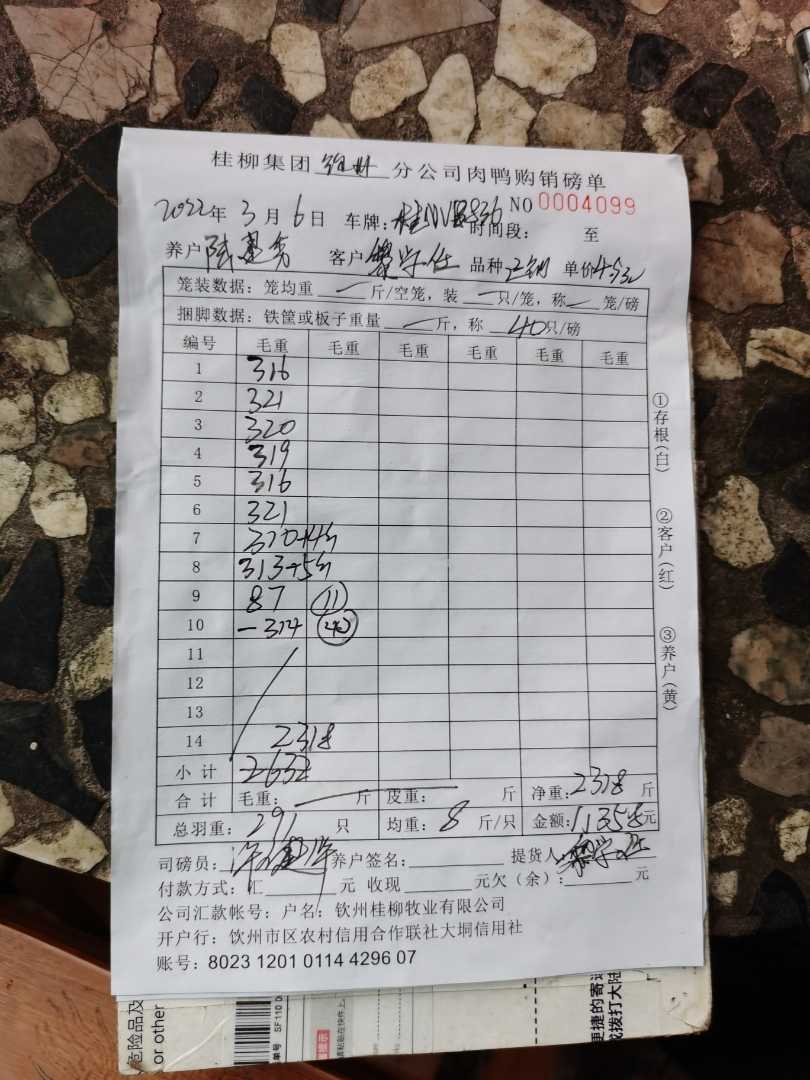 桂柳集团 分公司肉鸭购销磅单
2022年 3月 6日 车牌: 时间段: 至 NO 0004099
养户 陆 客户 黎学任 品种 单价
笼装数据: 笼均重 斤/空笼, 装 只/笼, 称 笼/磅
捆脚数据: 铁筐或板子重量 斤, 称 40只/磅
编号 毛重 毛重 毛重 毛重 毛重 毛重
1 316
2 321
3 320
4 319
5 316
6 321
7
8 313+5
9 87 ⑪
10 -314 ㊵
11
12
13
14 2318
小计 2632
合计 毛重: 斤 皮重: 斤 净重: 2318 斤
总羽重: 291 只 均重: 8 斤/只 金额: 11358元
司磅员: 养户签名: 提货人 黎学任
付款方式: 汇 元 收现 元欠(余): 元
公司汇款帐号: 户名: 钦州桂柳牧业有限公司
开户行: 钦州市区农村信用合作联社大垌信用社
账号: 8023 1201 0114 4296 07
①存根(白)
②客户(红)
③养户(黄)
危险品及
or other
SF110
单号